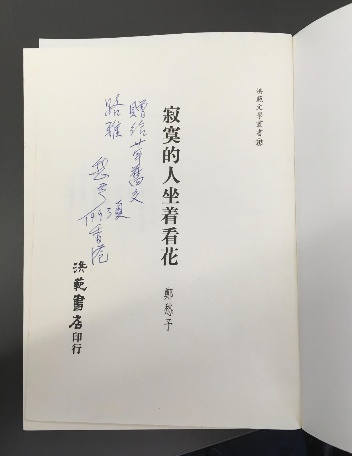 洪範文學叢書
寂寞的人坐着看花
鄭愁予
贈給廿年舊友
路雅
愁予
1993夏
香港
洪範書店印行